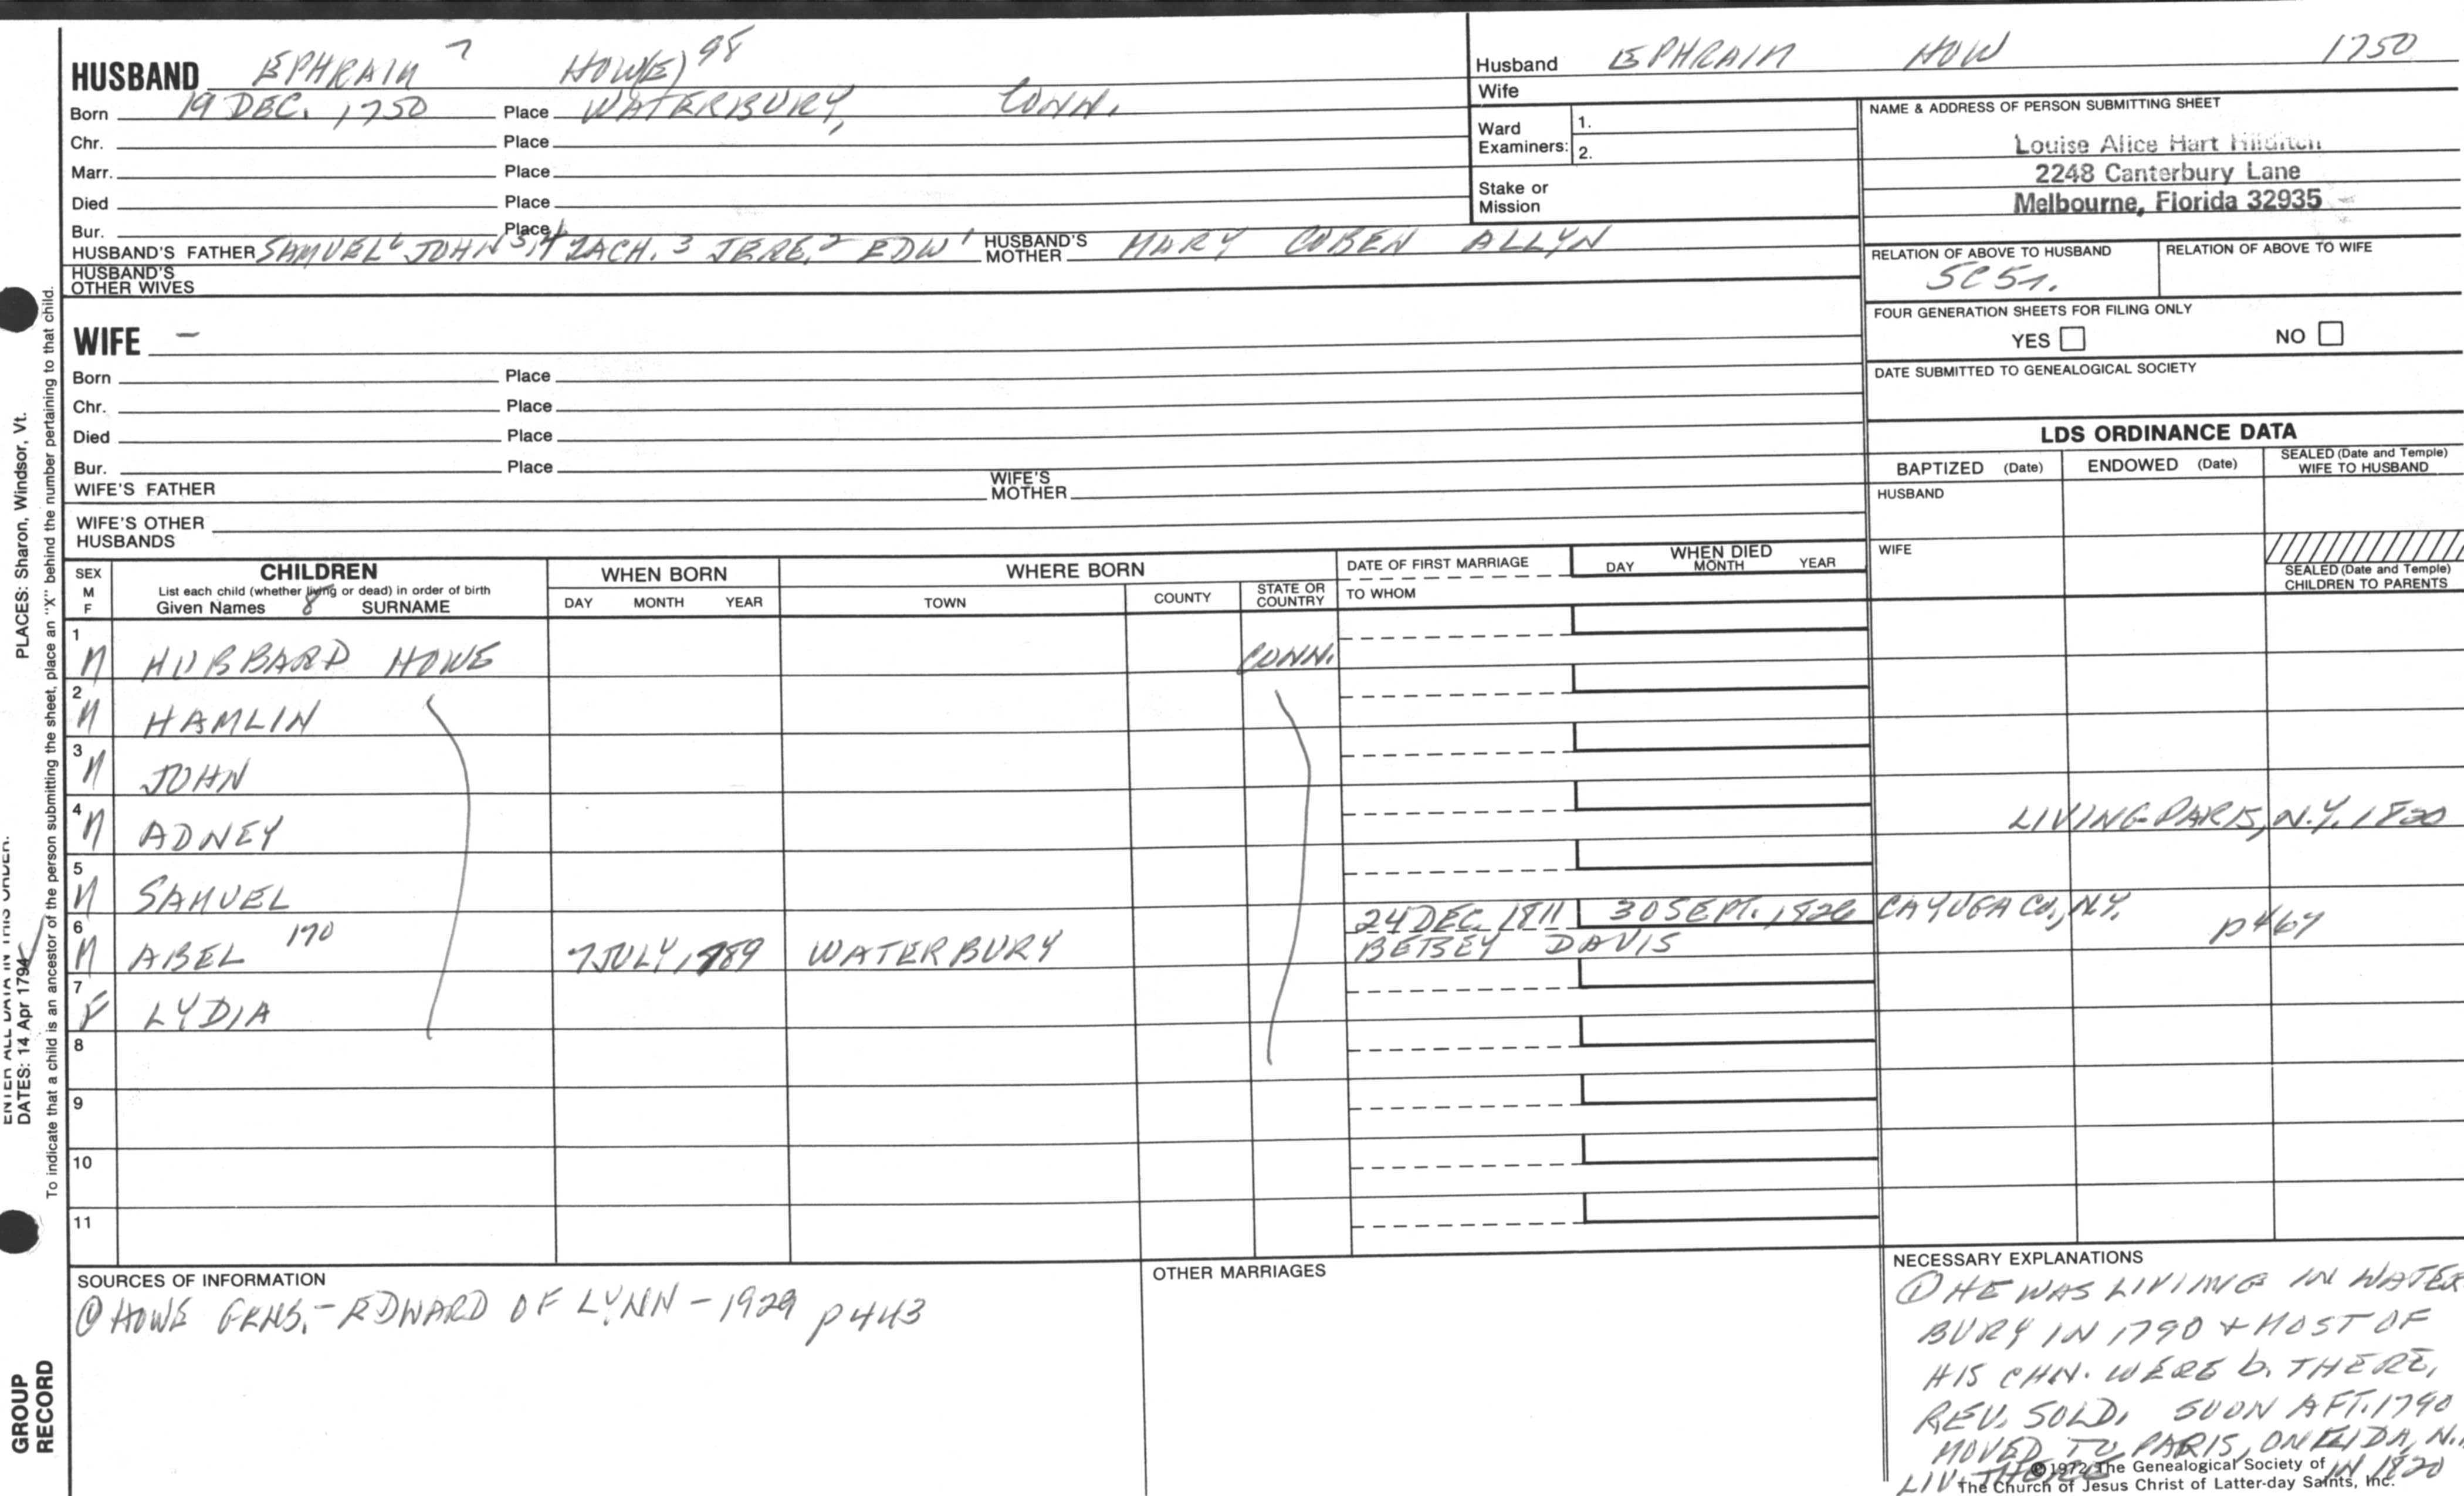 HUSBAND EPHRAIM 7 HOW(E) 98
Born 19 DEC. 1750 Place WATERBURY, CONN.
Chr. Place
Marr. Place
Died Place
Bur. Place
HUSBAND'S FATHER SAMUEL JOHN ZACH. 3 JERE. 2 EDW 1 HUSBAND'S MOTHER MARY ALLYN
HUSBAND'S OTHER WIVES
Husband EPHRAIM HOW 1750
Wife
Ward Examiners: 1.
2.
Stake or Mission
NAME & ADDRESS OF PERSON SUBMITTING SHEET
Louise Alice Hart
2248 Canterbury Lane
Melbourne, Florida 32935
RELATION OF ABOVE TO HUSBAND RELATION OF ABOVE TO WIFE
FOUR GENERATION SHEETS FOR FILING ONLY
YES NO
DATE SUBMITTED TO GENEALOGICAL SOCIETY
WIFE –
Born Place
Chr. Place
Died Place
Bur. Place
WIFE'S FATHER WIFE'S MOTHER
WIFE'S OTHER HUSBANDS
LDS ORDINANCE DATA
BAPTIZED (Date) ENDOWED (Date) SEALED (Date and Temple) WIFE TO HUSBAND
HUSBAND
WIFE
SEALED (Date and Temple) CHILDREN TO PARENTS
SEX M F
CHILDREN
List each child (whether living or dead) in order of birth
Given Names 8 SURNAME
WHEN BORN
DAY MONTH YEAR
WHERE BORN
TOWN COUNTY STATE OR COUNTRY
DATE OF FIRST MARRIAGE
TO WHOM
WHEN DIED
DAY MONTH YEAR
1 M HUBBARD HOWE CONN.
2 M HAMLIN
3 M JOHN
4 M ADNEY LIVING PARIS, N.Y. 1820
5 M SAMUEL
6 M ABEL 170 7 JULY, 1789 WATERBURY 24 DEC. 1811 30 SEPT. 1826 CAYUGA CO., N.Y.
BETSEY DAVIS
7 F LYDIA
8
9
10
11
SOURCES OF INFORMATION
① HOWE GENS. – EDWARD OF LYNN – 1929 p443
OTHER MARRIAGES
NECESSARY EXPLANATIONS
① HE WAS LIVING IN WATER
BURY IN 1790 + MOST OF
HIS CHN. WERE b. THERE,
REV. SOLD. SOON AFT. 1790
MOVED TO PARIS, ONEIDA, N.
LIV. THERE IN 1820
©1972 The Genealogical Society of
The Church of Jesus Christ of Latter-day Saints, Inc.
PLACES: Sharon, Windsor, Vt.
ENTER ALL DATA IN THIS ORDER:
DATES: 14 Apr 1794
To indicate that a child is an ancestor of the person submitting the sheet, place an "X" behind the number pertaining to that child.
GROUP RECORD